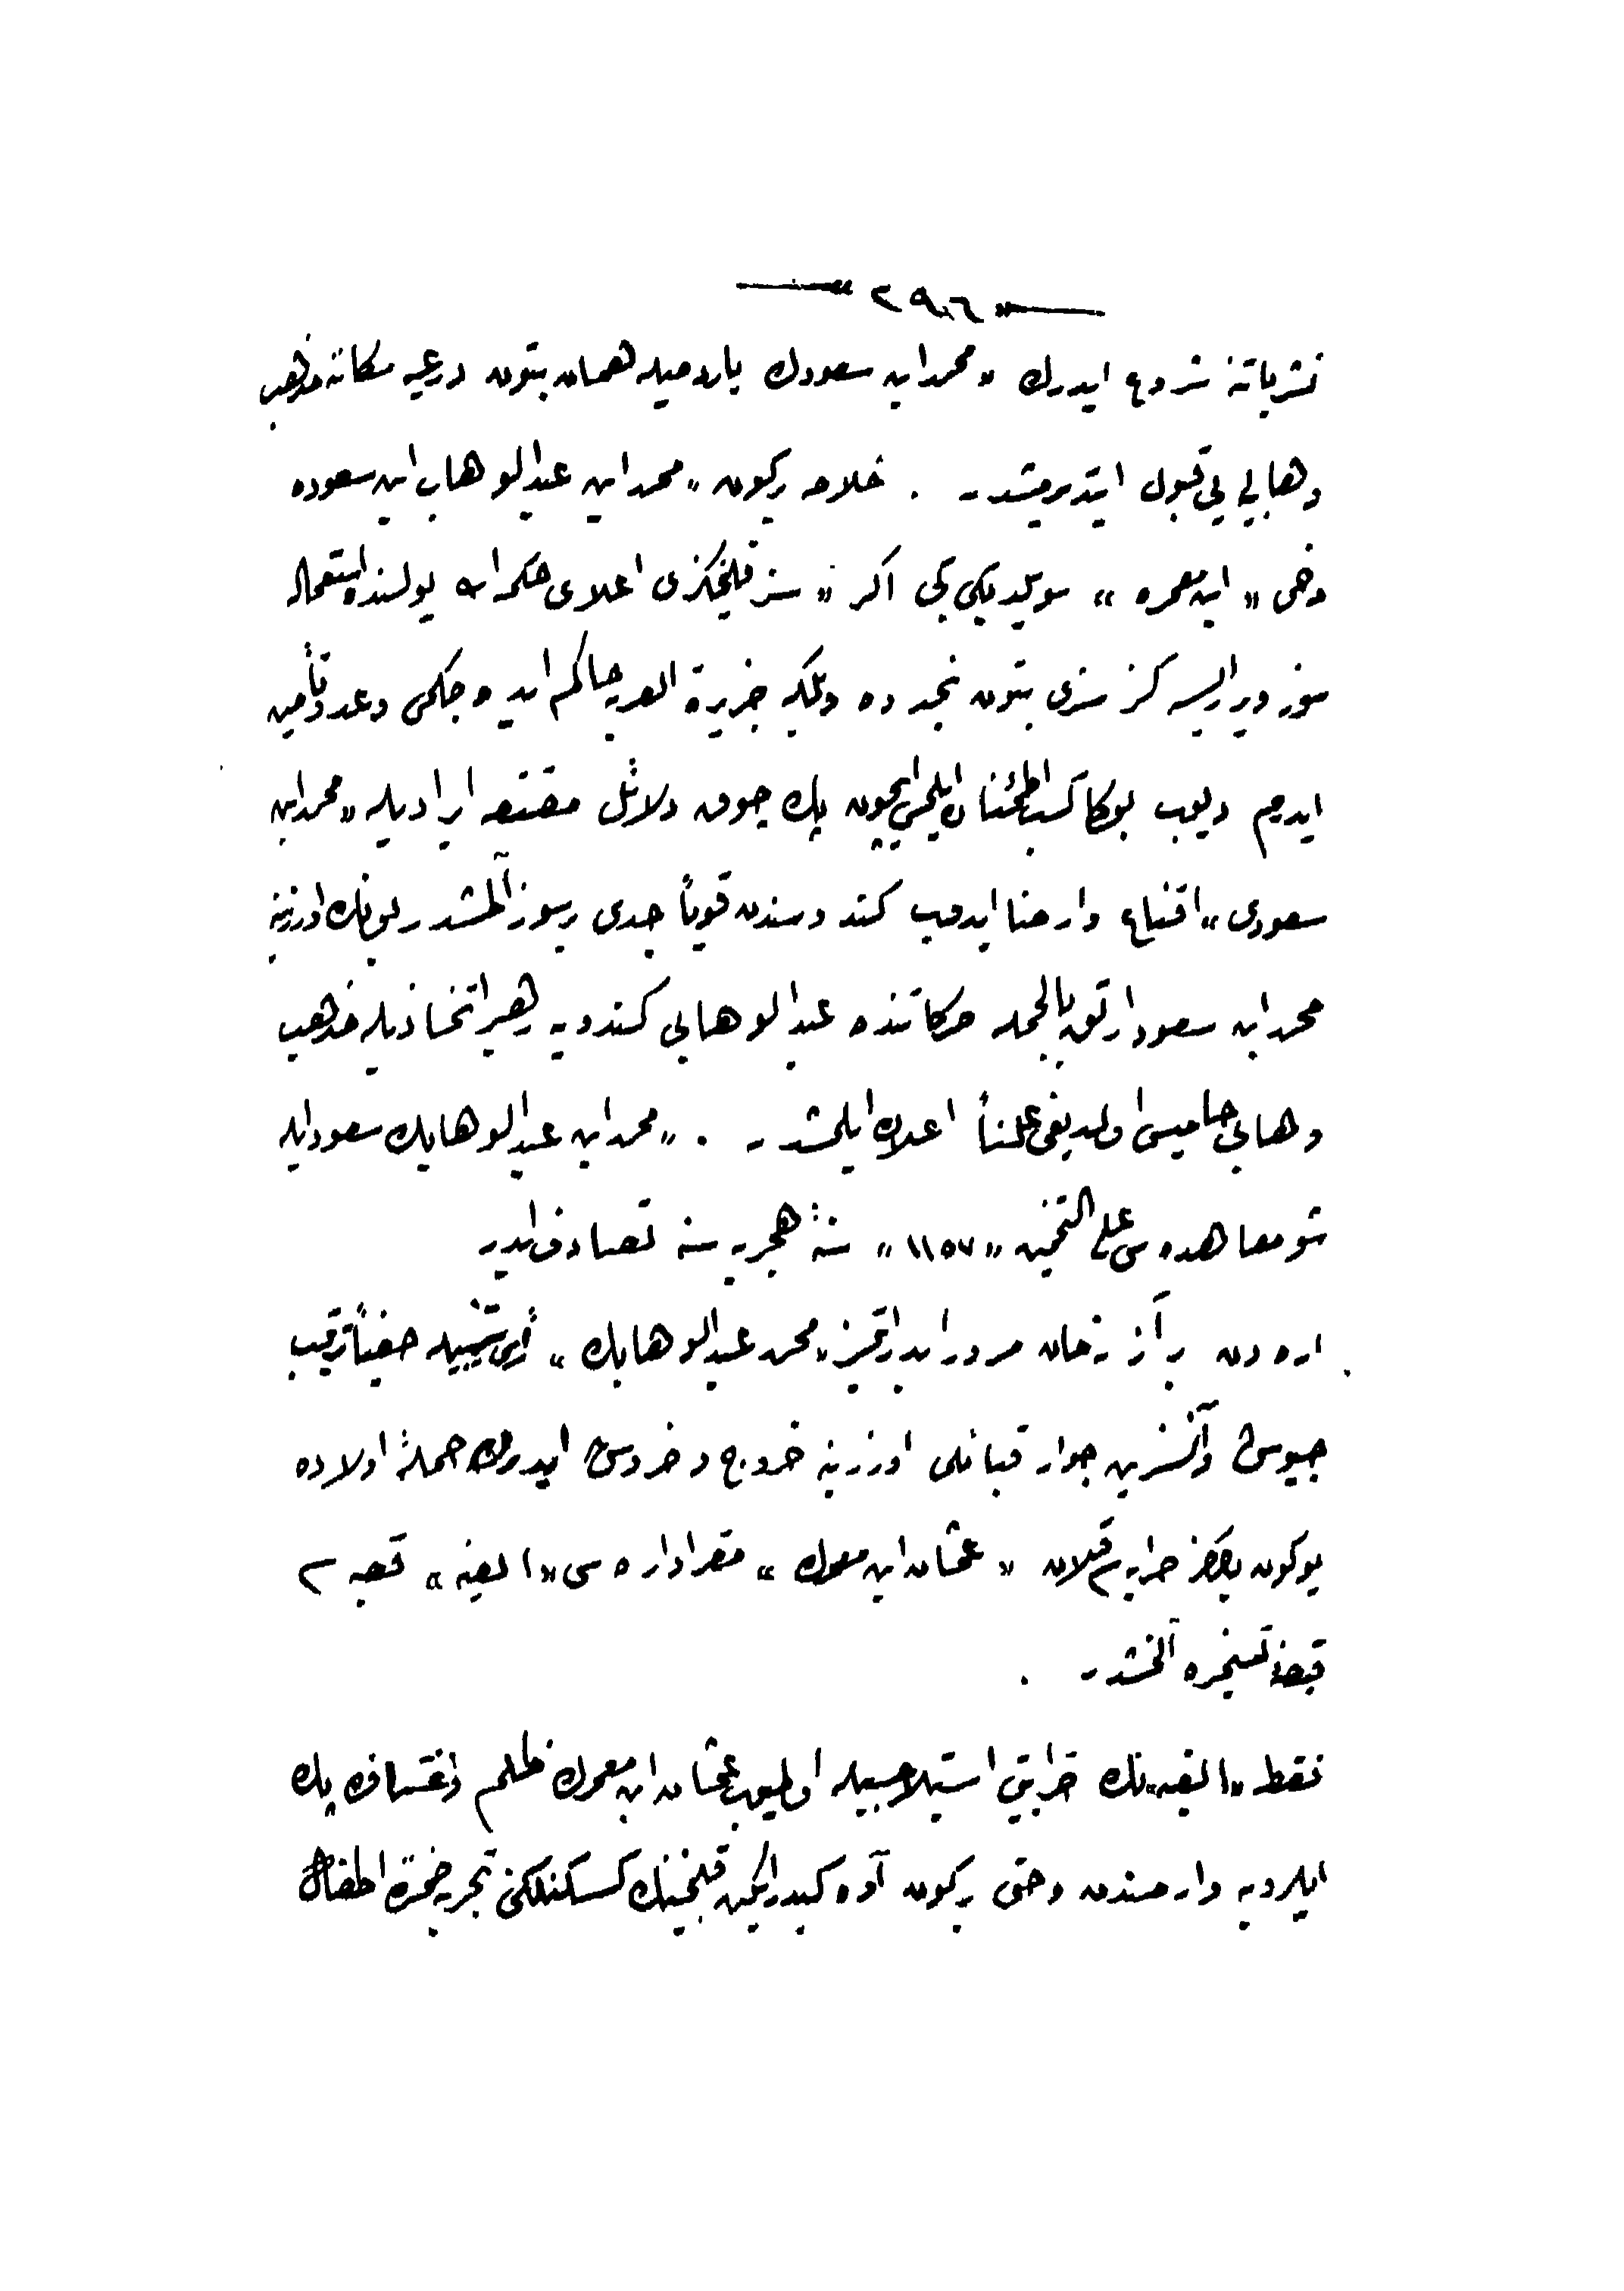 « ٢٩٦ »
نشریاتنه شروع ایدرك «محمد ابن سعودك یاردمیله همان بتون درعیه سكاننه مذهب
وهابی یی قبول ایتدیرمشدر . خلاصه بركون «محمد ابن عبدالوهاب ابن سعوده
دخی «ابن معمره» سویلدیكی كبی اكر «سز قلیجكزی اعلای حكم الله یولنده استعماله
سوز ویرایسه كز سزی بتون نجد ده وبلكه جزیرة العربه حاكم ایده جكمی وعد وتأمین
ایدرم دیوب بوكا كسب اطمئنان ایلمسی ایچون پك چوق دلائل مقنعه ایرادیله «محمد ابن
سعودی» اقناع وارضا ایدوب كندوسندن قویاً جدی برسوز آلمشدر بونك اوزرینه
محمد ابن سعود ارتق بالجمله حركاتنده عبدالوهابی كندویه رهبر اتخاذیله مذهب
وهابی حامیسی اولدیغی علناً اعلان ایلمشدر . «محمد ابن عبدالوهابك سعود ایله
شو معاهده سی علی التخمین «١١٥٧» سنۀ هجریه سنه تصادف ایدر
اره دن برآز زمان مرور ایدر ایتمز «محمد عبدالوهابك» رأی تنسیبیله خفیاً ترتیب
جیوش وآنسزین جوار قبائلی اوزرینه خروج وخروش ایدرك حملۀ اولاده
بوكون یالكز خرابه سی قلان «عثمان ابن معمرك» مقر اداره سی «العینه» قصبه سی
قبضۀ تسخیره آلنمشدر .
فقط «العینه»نك خرابیتی استیلا سبیله اولمیوب عثمان ابن معمرك ظلم واعتسافده پك
ایلرویه وارمسندن وحتی بركون آوه كیدر ایكن قلیجینك كسكنلكنی تجربه ضمننده اطفال